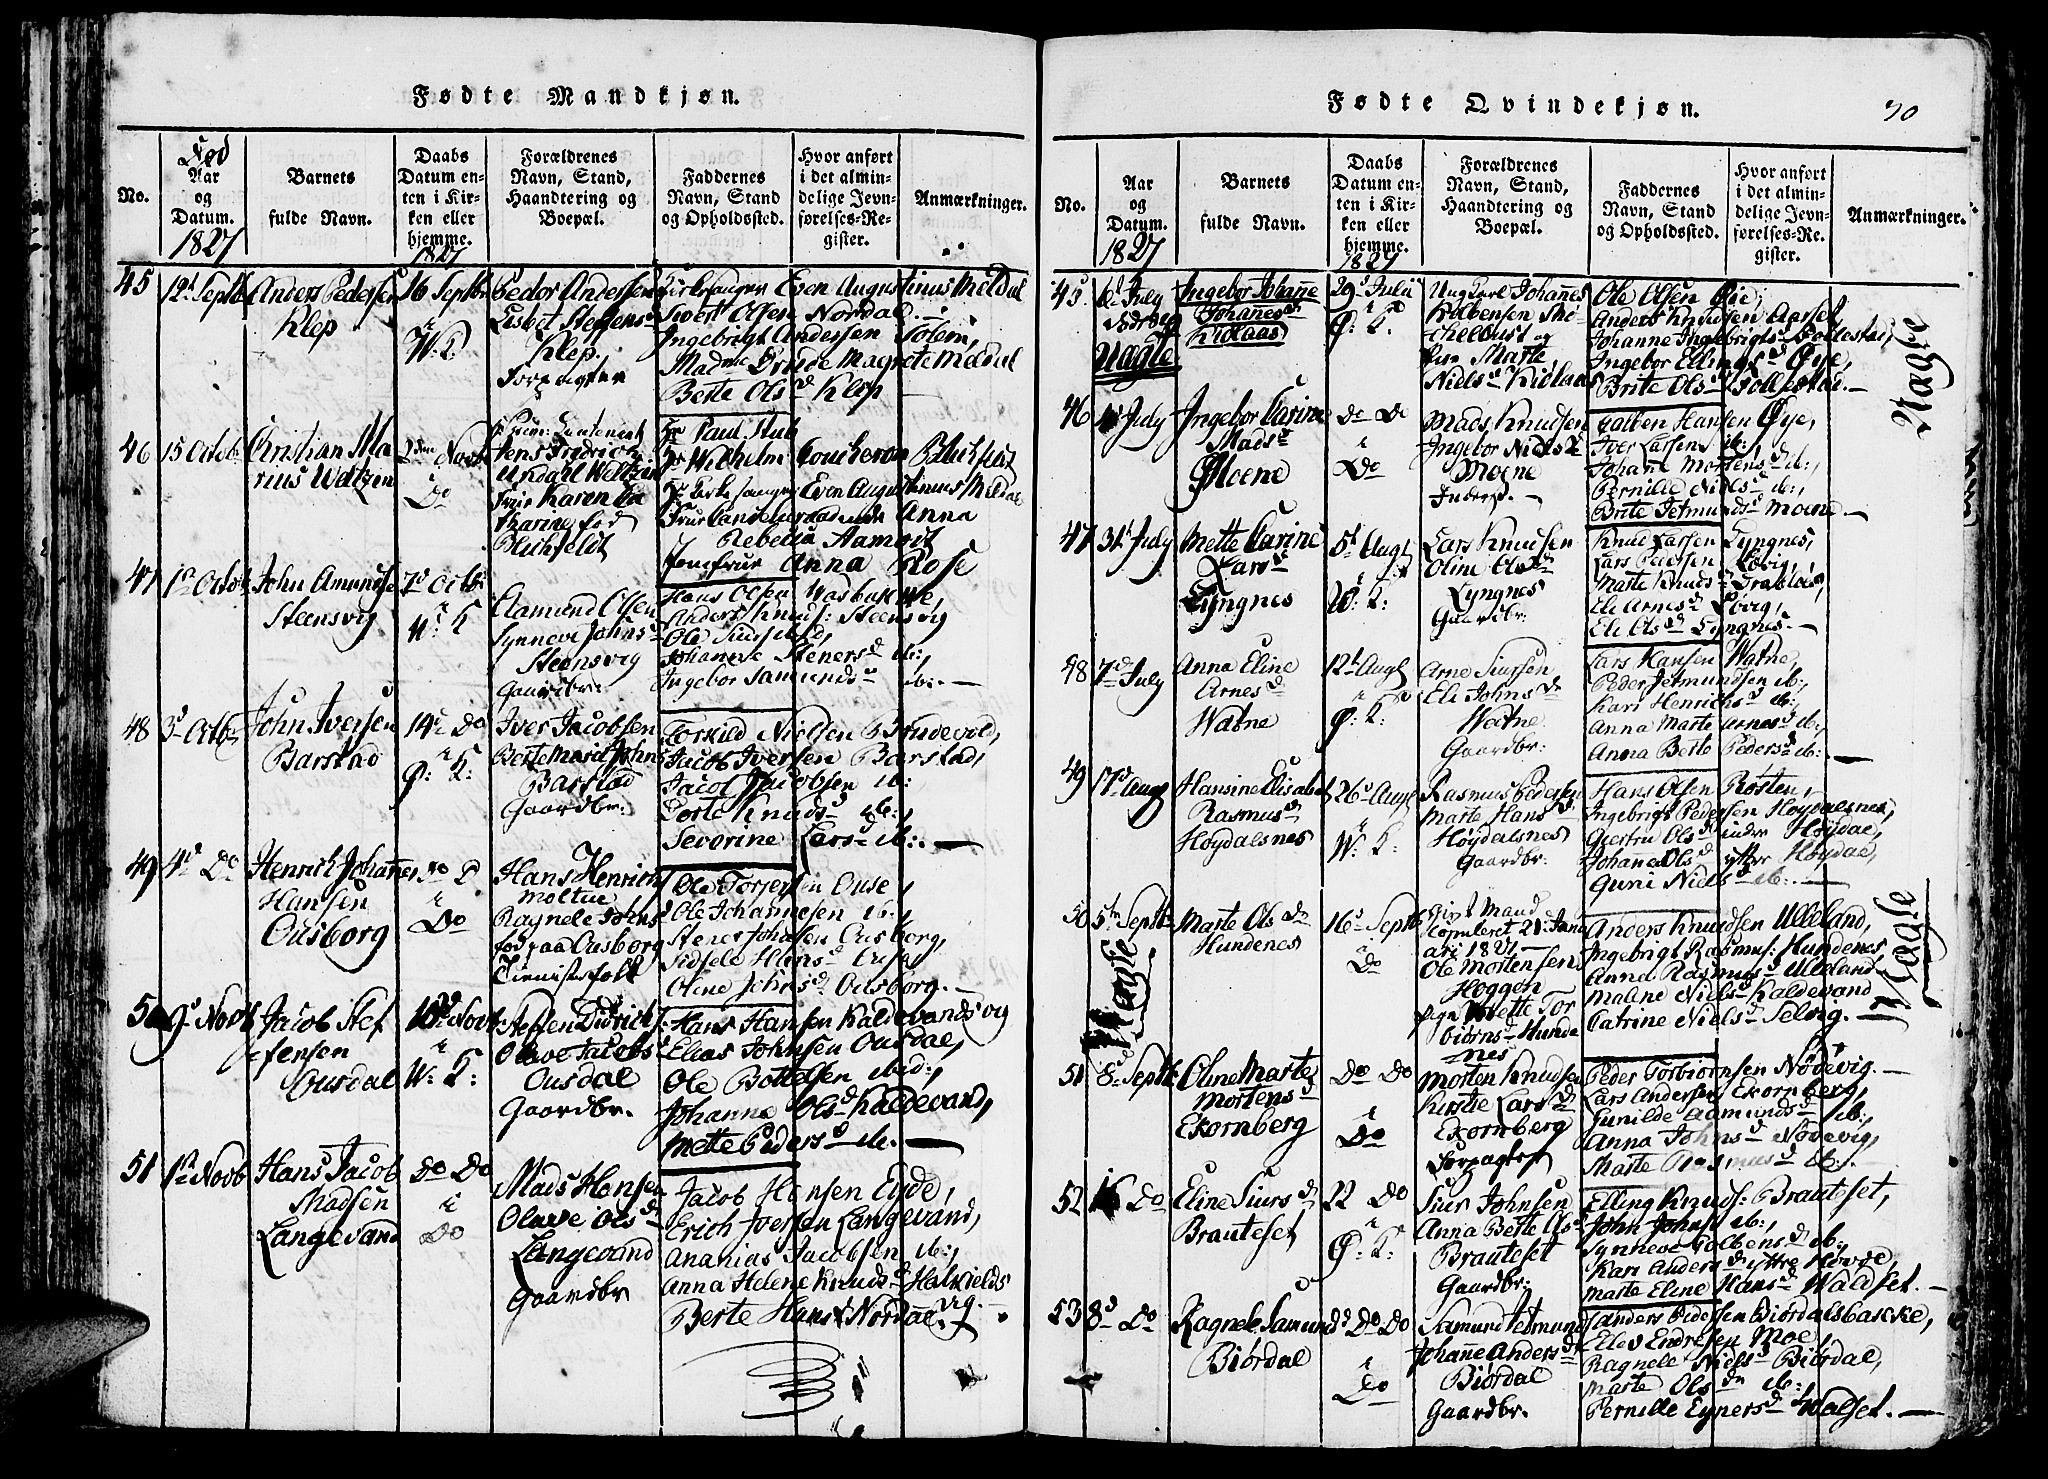 Fødte Mandkjøn.
No.
Fød
Aar
og
Datum.
1827
Barnets
fulde Navn.
Daabs
Datum en-
ten i Kir-
ken eller
hjemme.
1827
Forældrenes
Navn, Stand,
Haandtering og
Boepæl.
Faddernes
Navn, Stand
og Opholdssted.
Hvor anført
i det almin-
delige Jevn-
førelses-Re-
gister.
Anmærkninger.
45
12t Septb
Anders Pedersen
Klep
16 Septbr
i
W: K:
Peder Andersen
Lisbet Steffens
Klep.
Forpagter
Kirkesanger Even Augustinus Meldal
Sivert Olsen Nordal
Ingebrigt Andersen Solem,
Madme Drude Magrete Meldal
Berte Olsd Klep
46
15 Octob
Christian Ma
rius Weltzin
2den Novb
i
Do
Jens Fredrich
Undahl Weltzin
Frue Karen Ca
tharine fød
Blichfeldt
Hr Paul Stub
Hr Wilhelm Coucheron Blichfeldt
Hr Kirkesanger Even Augustinus Meldal
Anna
Rebecca Aamodt
Jomfrue Anna Rose
47
1te Octob
John Amundsen
Steensvig
7d Octbr
i
W: K
Aamund Olsen
Synneve Johns
Steensvig
Gaardbr:
Hans Olsen
Anders Knuds: Steensvig
Ole Siursen ibid,
Johanne Steenersd ib:,
Ingebor Samundsd ib:
48
3d Octb
John Iversen
Barstad
14de Do
i
Ø: K:
Iver Jacobsen
Berte Marie Johns
Barstad
Gaardbr:
Torkild Nielsen Brudevold,
Jacob Iversen Barstad,
Jacob Jacobsen ib:
Dorte Knudsd ib:,
Severine Larsd ib:
49
4d Do
Henrich Johannes
Hansen
Ousborg
Do D
i
Do
Hans Henrichs
Moltue
Ragnele Johns
fød paa Ousborg
Tienistefolk
Ole Torjersen Ouse,
Ole Johannesen ib:,
Stener Johnsen Ousborg,
Sidsele Hansd
Oline Johnsd Ousborg.
50
9d Novb
Jacob Stef
fensen
Ousdal
10d Novb
i
W: K:
Steffen Didrichs:
Olave Jacobs
Ousdal
Gaardbr.
Hans Hansen Kaldevandsvig
Elias Johnsen Ousdal,
Ole Bottelsen ibid:,
Johanne Olsd Kaldevand,
Mette Pedersd ib.
51
1te Novb
Hans Jacob
Madsen
Langevand
Do Do
i
Do
Mads Hansen
Olave Olsd
Langevand
Gaardbr
Jacob Hansen Eyde,
Erich Iversen Langevand,
Ananias Jacobsen ib:,
Anna Helene Knudsd Halkields
vig.
Berte Hansd Nordal.
Fødte Qvindekjøn.
30
No.
Aar
og
Datum.
1827
Barnets
fulde Navn.
Daabs
Datum en-
ten i Kir-
ken eller
hjemme.
1827
Forældrenes
Navn, Stand,
Haandtering og
Boepæl.
Faddernes
Navn, Stand
og Opholdssted.
Hvor anført
i det almin-
delige Jevn-
førelses-Re-
gister.
Anmærkninger.
45.
July
Uægte
Ingebor Johanne
Johannesd
Kidlaas
29d Julii
i
Ø: K:
Ungkarl Johannes
Rabensen
og
Marte
Nielsd Kidlaas
Ole Olsen Øie,
Anders Knudsen Aarset,
Johanne Ingebrigtsd Follestad,
Ingebor Ellingsd Øye,
Brite Olsd Follestad.
Uægte
46
July
Ingebor Carine
Madsd
Moene
Do Do
i
Do
Mads Knudsen
Ingebor Nielsd
Moene
Inderst.
Colben Hansen Øye,
Iver Larsen ib:,
Johane Mortensd ib:,
Pernille Nielsd ib:,
Brite Jetmundsd Moene.
47
31t July
Mette Carine
Larsd
Lyngnes
5d Augt
i
W: K:
Lars Knudsen
Oline Olsd
Lyngnes
Gaardbr:
Knud Larsen Lyngnes,
Lars Pedersen Løvig,
Marte Knudsd
Eli Arnesd Løvig,
Eli Olsd Lyngnes.
48
7d July
Anna Eline
Arnesd
Watne
12t Augt
i
Ø: K:
Arne Siursen
Eli Johnsd
Watne
Gaardbr:
Lars Hansen Watne,
Peder Jetmundsen ib:,
Kari Henrichsd ib:,
Anna Marte Arnesd ib:,
Anna Berte Pedersd ib:
49
17d Augt
Hansine Elisabet
Rasmusd
Høydalsnes
26d Augt
i
W: K:
Rasmus Pedersen
Marte Hansd
Høydalsnes
Gaardbr:
Hans Olsen Rosten,
Ingebrigt Pedersen Høydalsnes,
Giertru Olsd indre Høydal,
Johane Olsd ytter Høydal,
Guni Nielsd ib:
50
5te Septb
Uægte
Marte Olsdr
Hundenes
16d Septb
i
Do
Givt Mand
copuleret 21d Janu
ari 1827
Ole Mortensen
Hoggen
Pige Mette Tor
biørnsd Hunde
nes
Anders Knudsen Ulleland,
Ingebrigt Rasmus: Hundenes,
Anna Rasmusd Ulleland
Maline Nielsd Kaldevand
Catrine Nielsd Selvig.
Uægte
51
8d Septb
Oline Marte
Mortensd
Ekornberg
Do Do
i
Do
Morten Knudsen
Kirstie Larsd
Ekornberg
Forpagter
Peder Torbiørnsen Nødevig.
Lars Andersen Ekornberg,
Gunilde Aamundsd ib:,
Anna Johnsd Nødevig,
Marte Rasmusd ib:.
52
16 Do
Eline Siursd
Brauteset
22 Do
i
Ø: K:
Siur Johnsen
Anna Berte Olsd
Brauteset
Gaardbr:
Elling Knuds: Brauteset,
John Johns: ib:,
Synneve Colbensd ib:,
Kari Andersd yttre Hovde,
Marte Eline Hansd Waldset.
53
8d Do
Ragnele Samunds
Biørdal
Do Do
i
Do
Samund Jetmunds
Johane Andersd
Biørdal
Gaardbr.
Anders Pedersen Biørdalsbakke,
Elev Endresen Moe,
Ragnele Nielsd Biørdal,
Marte Olsdr ib:,
Pernille Eynersd Walset.